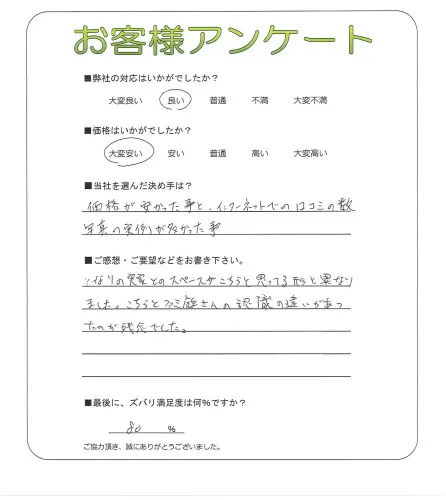 お客様アンケート
■弊社の対応はいかがでしたか？
大変良い 良い 普通 不満 大変不満
■価格はいかがでしたか？
大変安い 安い 普通 高い 大変高い
■当社を選んだ決め手は？
価格が安かった事と、インターネットでの口コミの数
写真の実例が多かった事
■ご感想・ご要望などをお書き下さい。
となりの家とのスペースがこちらと思ってる形と異なり
ました。こちらと さんの認識の違いがあっ
たのが残念でした。
■最後に、ズバリ満足度は何%ですか？
80 %
ご協力頂き、誠にありがとうございました。